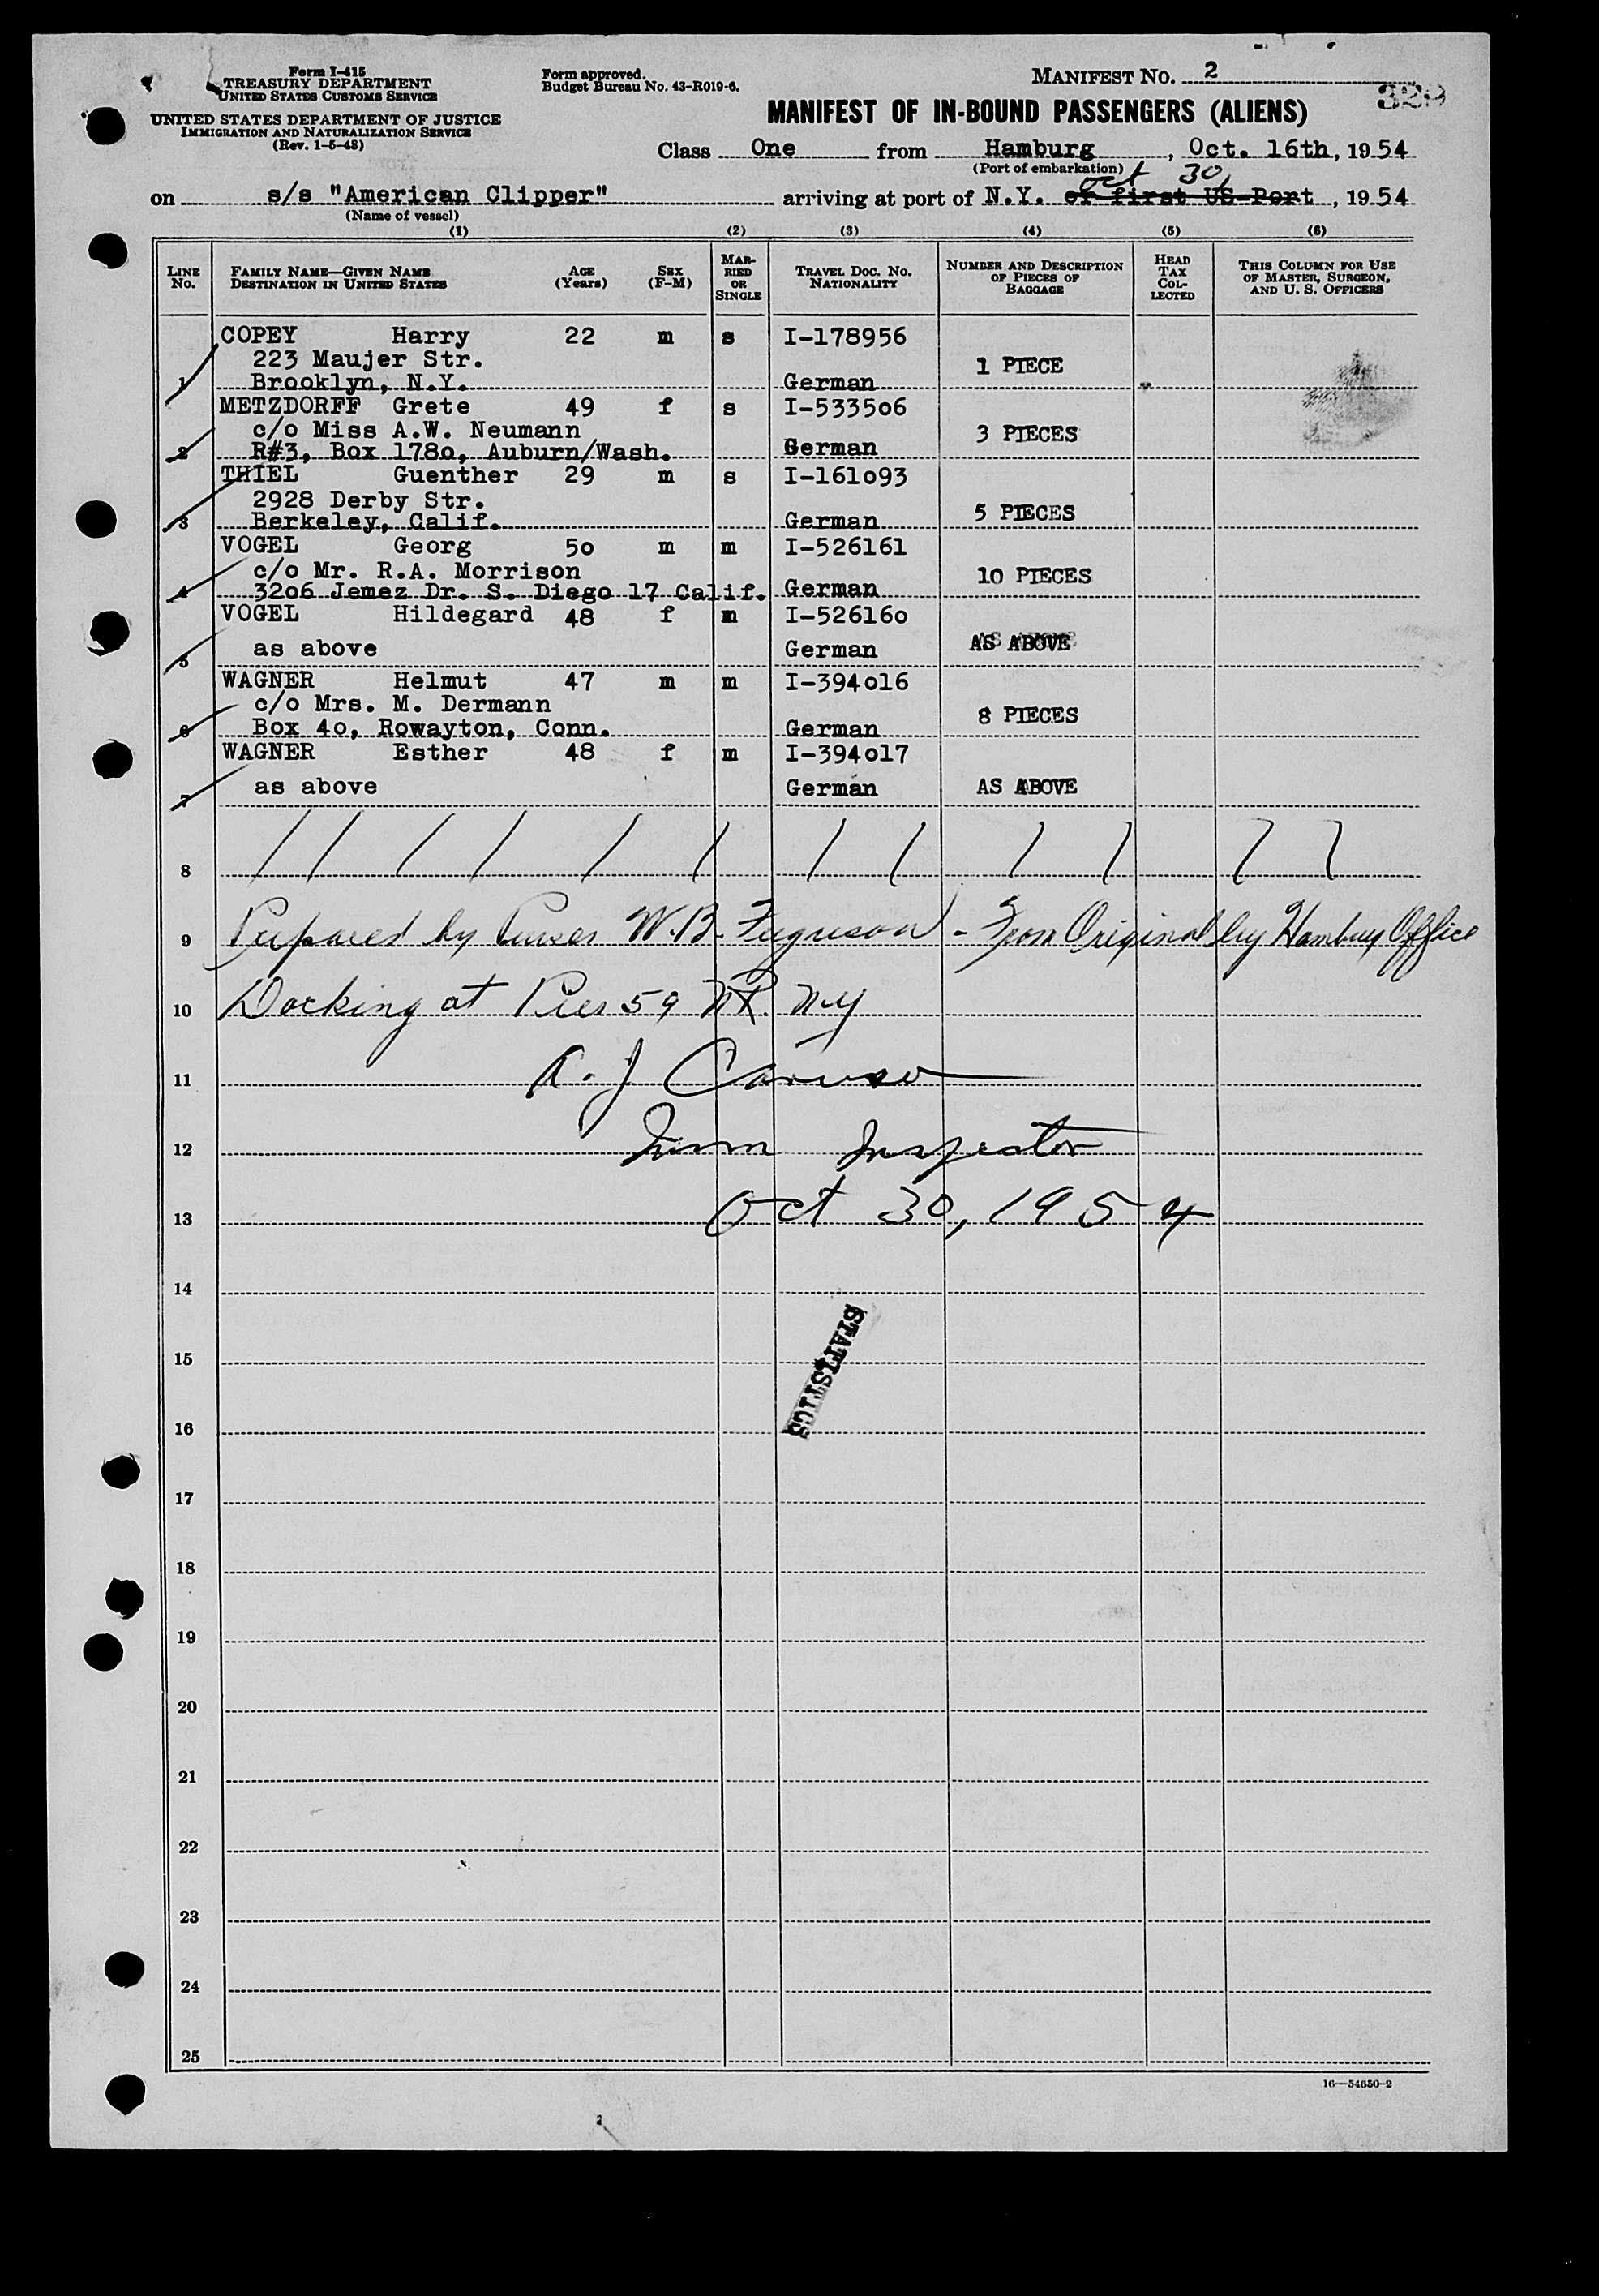 Form I-415
TREASURY DEPARTMENT
UNITED STATES CUSTOMS SERVICE
UNITED STATES DEPARTMENT OF JUSTICE
IMMIGRATION AND NATURALIZATION SERVICE
(Rev. 1-5-48)
Form approved.
Budget Bureau No. 43-R019-6.
MANIFEST NO. 2
329
MANIFEST OF IN-BOUND PASSENGERS (ALIENS)
Class One from Hamburg, Oct. 16th, 1954
(Port of embarkation)
Oct 30,
on s/s "American Clipper" arriving at port of N.Y. or first US-Port, 1954
(Name of vessel)
(1) (2) (3) (4) (5) (6)
LINE No. FAMILY NAME—GIVEN NAME DESTINATION IN UNITED STATES AGE (Years) SEX (F-M) MARRIED OR SINGLE TRAVEL DOC. NO. NATIONALITY NUMBER AND DESCRIPTION OF PIECES OF BAGGAGE HEAD TAX COLLECTED THIS COLUMN FOR USE OF MASTER, SURGEON, AND U. S. OFFICERS
COPEY Harry 22 m s I-178956
223 Maujer Str. 1 PIECE
1 Brooklyn, N.Y. German
METZDORFF Grete 49 f s I-5335o6
c/o Miss A.W. Neumann 3 PIECES
2 R#3, Box 178o, Auburn/Wash. German
THIEL Guenther 29 m s I-161o93
2928 Derby Str. 5 PIECES
3 Berkeley, Calif. German
VOGEL Georg 5o m m I-526161
c/o Mr. R.A. Morrison 10 PIECES
4 32o6 Jemez Dr. S. Diego 17 Calif. German
VOGEL Hildegard 48 f m I-52616o
5 as above German AS ABOVE
WAGNER Helmut 47 m m I-394o16
c/o Mrs. M. Dermann 8 PIECES
6 Box 4o, Rowayton, Conn. German
WAGNER Esther 48 f m I-394o17
7 as above German AS ABOVE
8
9 Prepared by Purser W.B. Ferguson - From Original by Hamburg Office
10 Docking at Pier 59 NR. NY
11 A. J Caruso
12 Imm Inspector
13 Oct 30, 1954
14
STATISTICS
15
16
17
18
19
20
21
22
23
24
25
16—54650-2
2